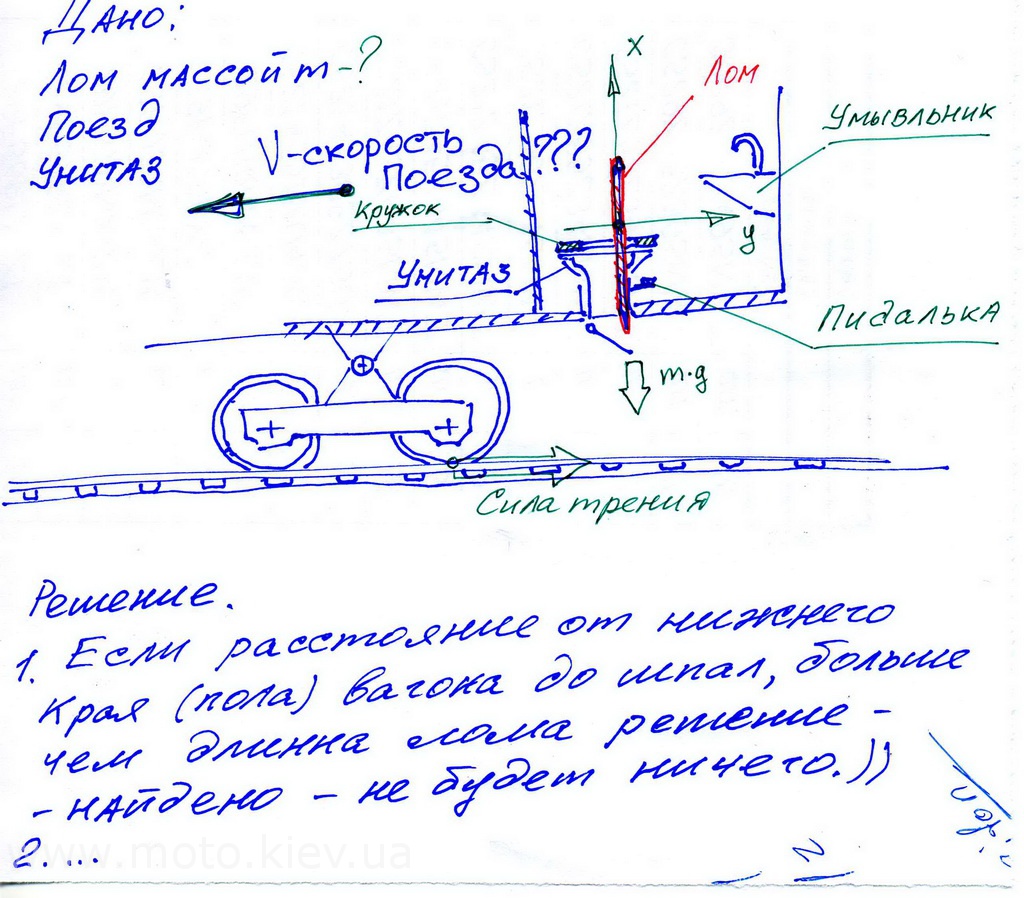 Дано:
Лом массой m-?
Поезд
Унитаз
V-скорость
Поезда ???
X
Лом
Умывльник
Кружок
y
Унитаз
Пидалька
m·g
Сила трения
Решение.
1. Если расстояние от нижнего
края (пола) вагона до шпал, больше
чем длинна лома решение -
- найдено - не будет ничего.))
2. ...
www.moto.kiev.ua